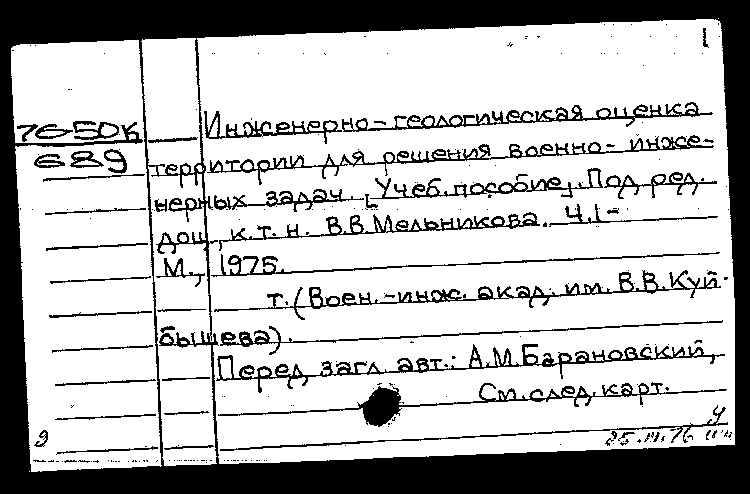 1
76-50к
689
Инженерно-геологическая оценка
территории для решения военно-инже-
нерных задач. [Учеб. пособие]. Под ред.
доц., к.т.н. В.В. Мельникова. Ч.1-
М., 1975.
т. (Воен.-инж. акад. им. В.В. Куй-
бышева).
Перед загл. авт.: А.М. Барановский,
См. след. карт.
9
У